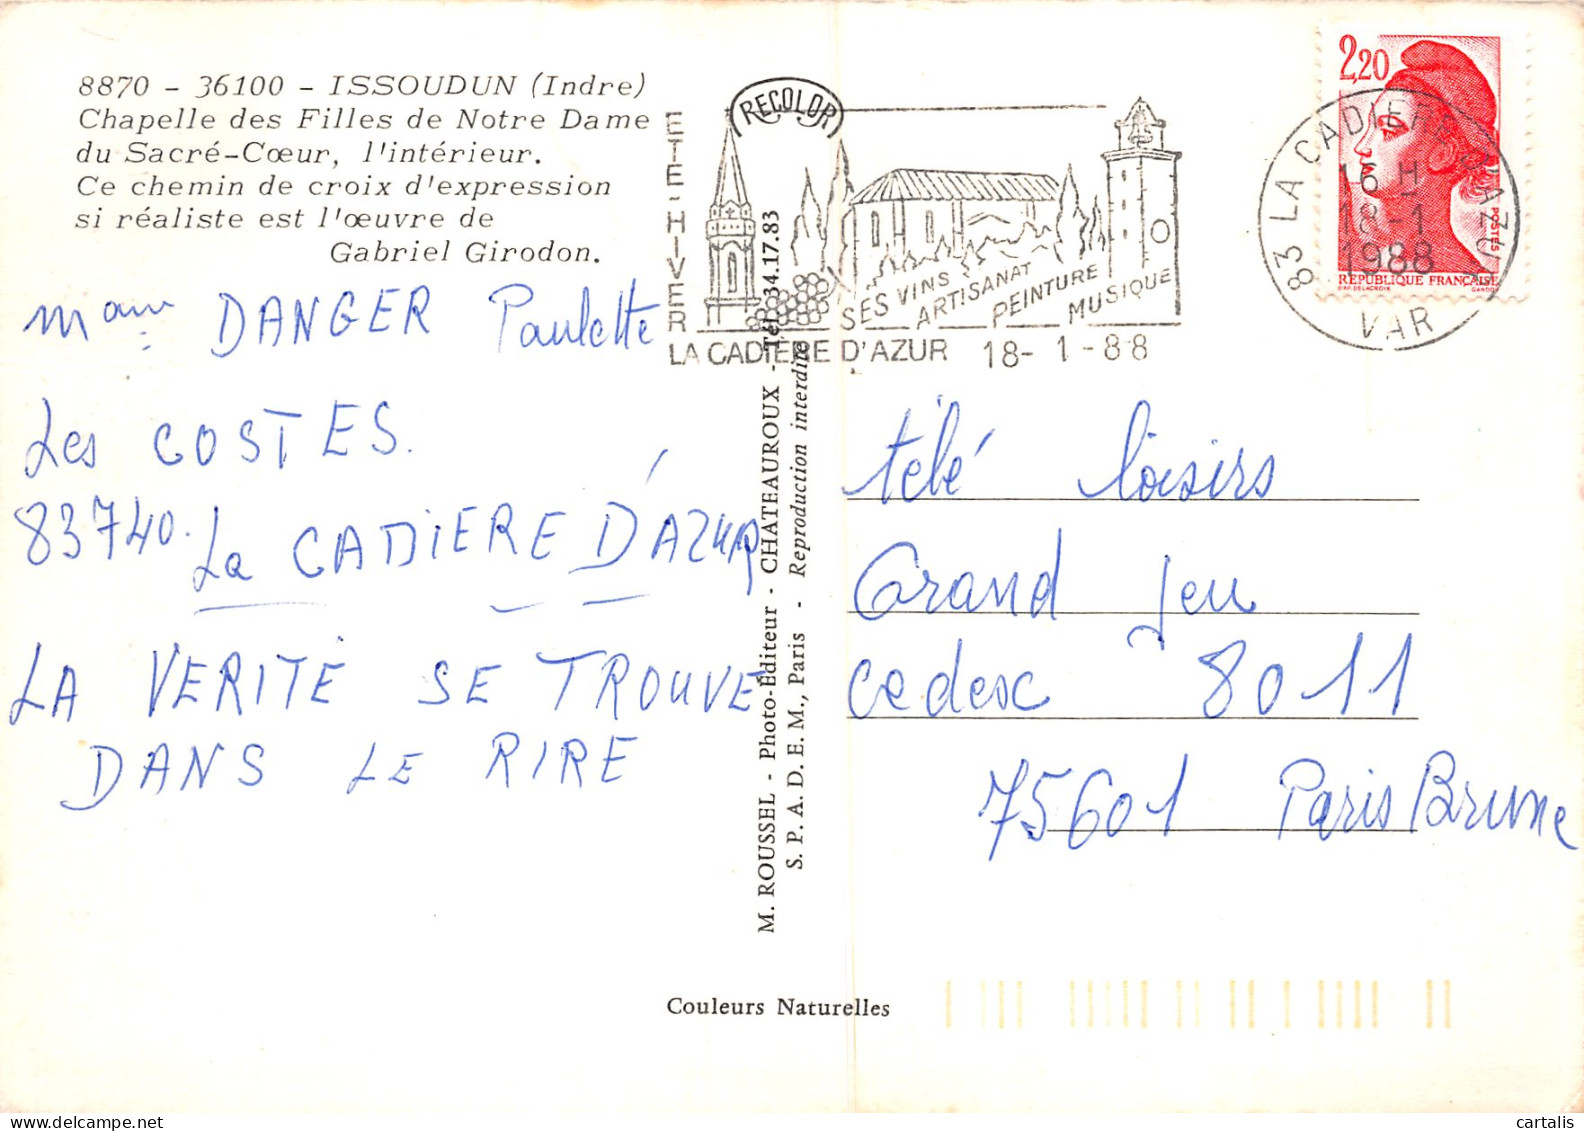 8870 - 36100 - ISSOUDUN (Indre)
Chapelle des Filles de Notre Dame
du Sacré-Cœur, l'intérieur.
Ce chemin de croix d'expression
si réaliste est l'œuvre de
Gabriel Girodon.
DANGER Paulette
Les COSTES.
83740. La CADIERE D'AZUR
LA VERITÉ SE TROUVE
DANS LE RIRE
RECOLOR
ETE-HIVER
SES VINS
ARTISANAT
PEINTURE
MUSIQUE
LA CADIERE D'AZUR 18- 1 -88
M. ROUSSEL - Photo-Éditeur - CHATEAUROUX - Tél. 34.17.83
S. P. A. D. E. M., Paris - Reproduction interdite
2,20
POSTES
REPUBLIQUE FRANÇAISE
D'AP. DELACROIX GANDON
83 LA CADIERE D'AZUR
16 H
18-1
1988
VAR
télé loisirs
Grand Jeu
cedex 8011
75601 Paris Brune
Couleurs Naturelles
cartalis